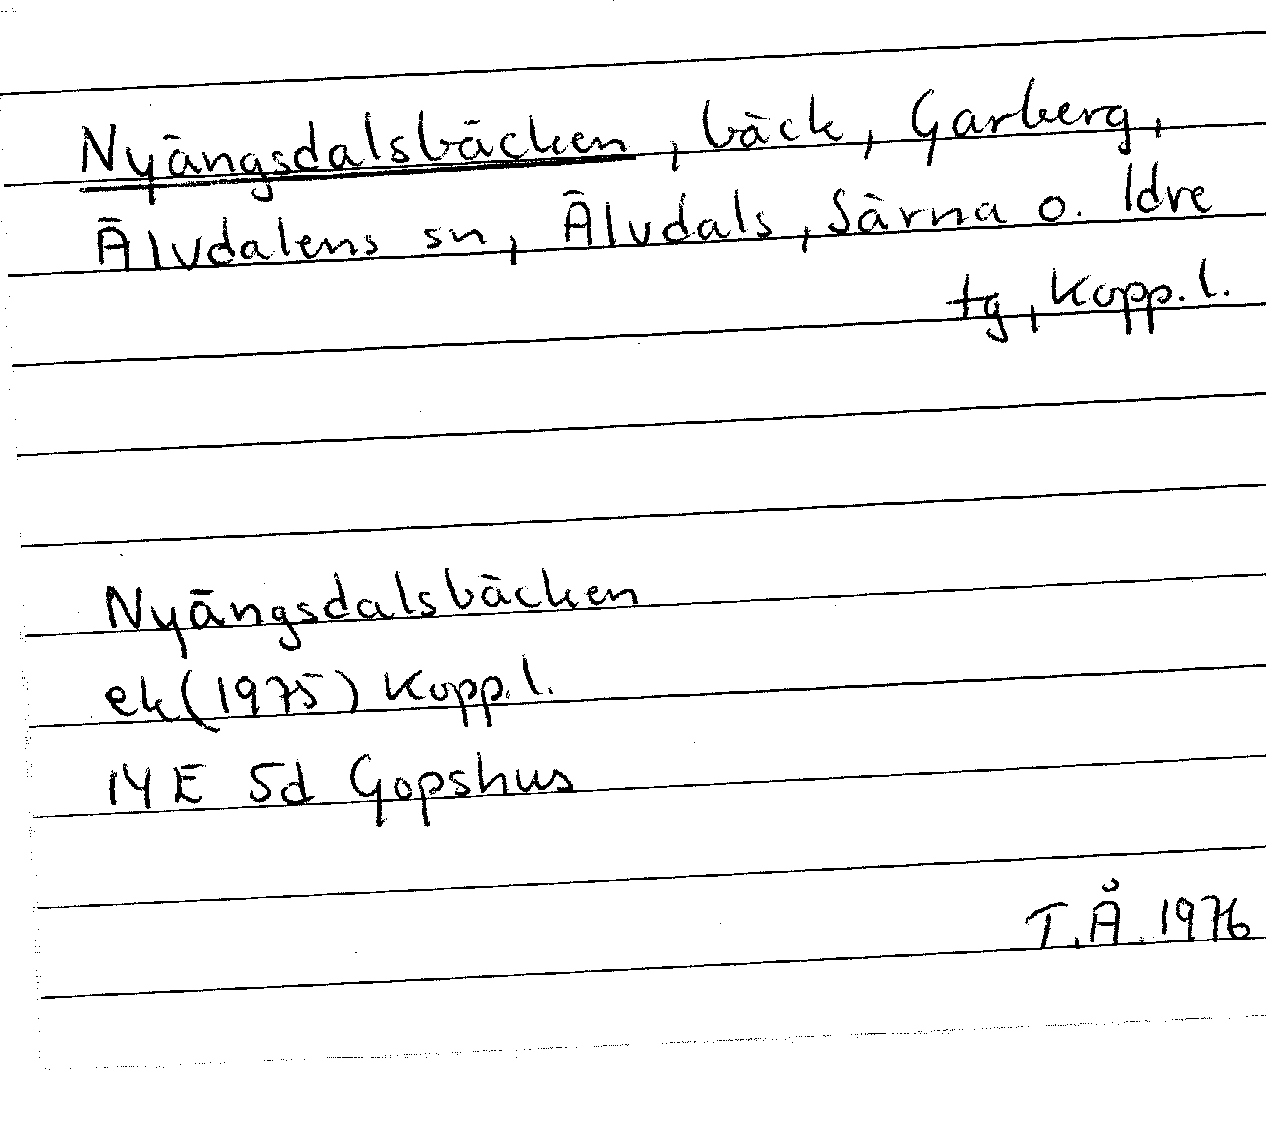 Nyängsdalsbäcken, bäck, Garberg,
Älvdalens sn, Älvdals, Särna o. Idre
tg, Kopp. l.
Nyängsdalsbäcken
ek (1975) Kopp. l.
14 E 5d Gopshus
T.Å. 1976